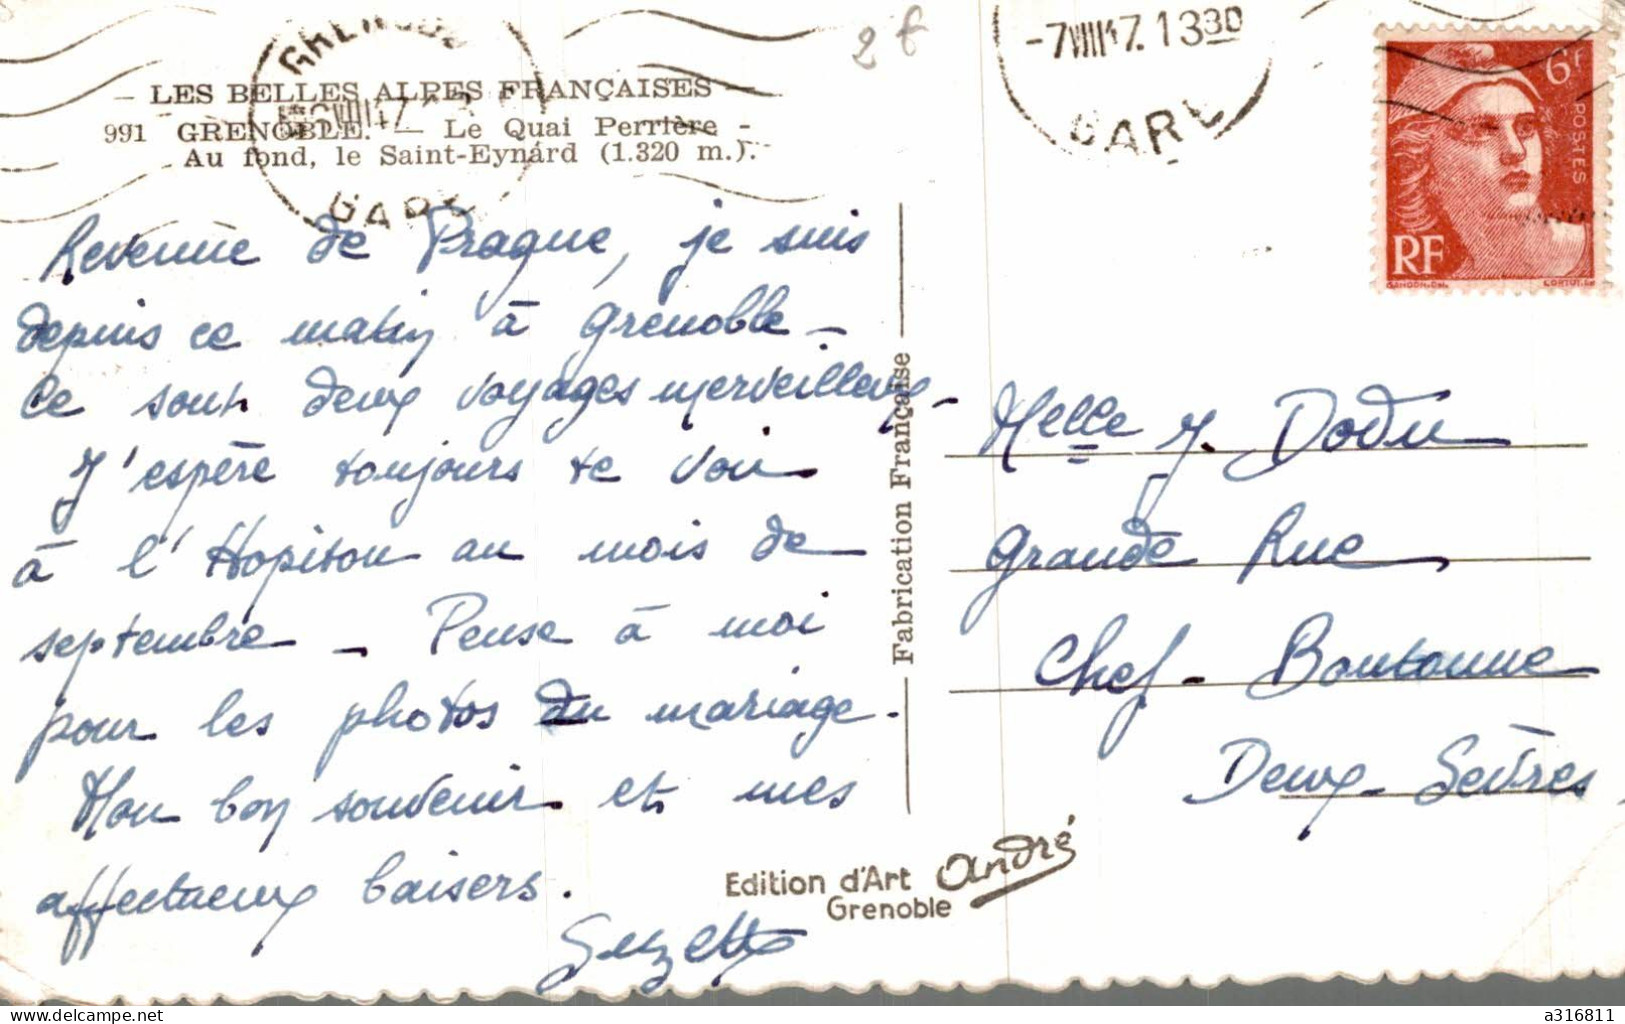 2 f
GRENOBLE
GARE
-7VIII47.1330
GARE
6f
POSTES
RF
GANDON.DEL.
CORTOT.SC
— LES BELLES ALPES FRANÇAISES —
991 GRENOBLE. — Le Quai Perrière -
Au fond, le Saint-Eynard (1.320 m.).
Revenue de Prague, je suis
depuis ce matin à Grenoble –
Ce sont deux voyages merveilleux –
J'espère toujours te voir
à l'Hopitou au mois de
septembre – Pense à moi
pour les photos du mariage.
Mon bon souvenir et mes
affectueux baisers.
Suzette
Fabrication Française
Edition d'Art André
Grenoble
Melle Y. Dodu
Grande Rue
Chef-Boutonne
Deux-Sèvres
delcampe.net
a316811